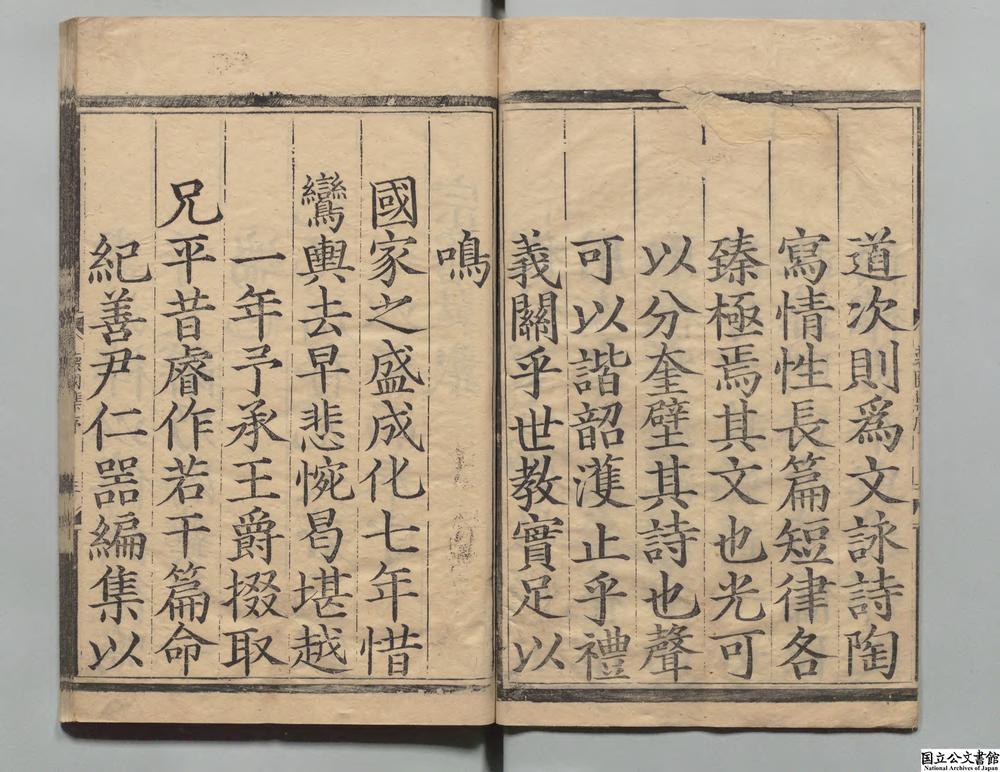 道次則爲文詠詩陶
寫情性長篇短律各
臻極焉其文也光可
以分奎壁其詩也聲
可以諧韶濩止乎禮
義關乎世教實足以
鳴
國家之盛成化七年惜
鸞輿去早悲惋曷堪越
一年予承王爵掇取
兄平昔睿作若干篇命
紀善尹仁器編集以
国立公文書館
National Archives of Japan